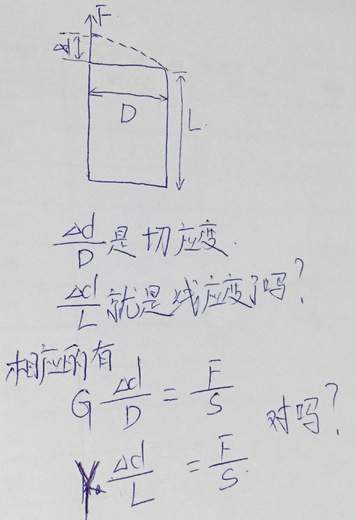 F
Δd
D
L
Δd/D 是切应变.
Δd/L 就是线应变了吗?
相应的有
G Δd/D = F/S
对吗?
Y Δd/L = F/S.